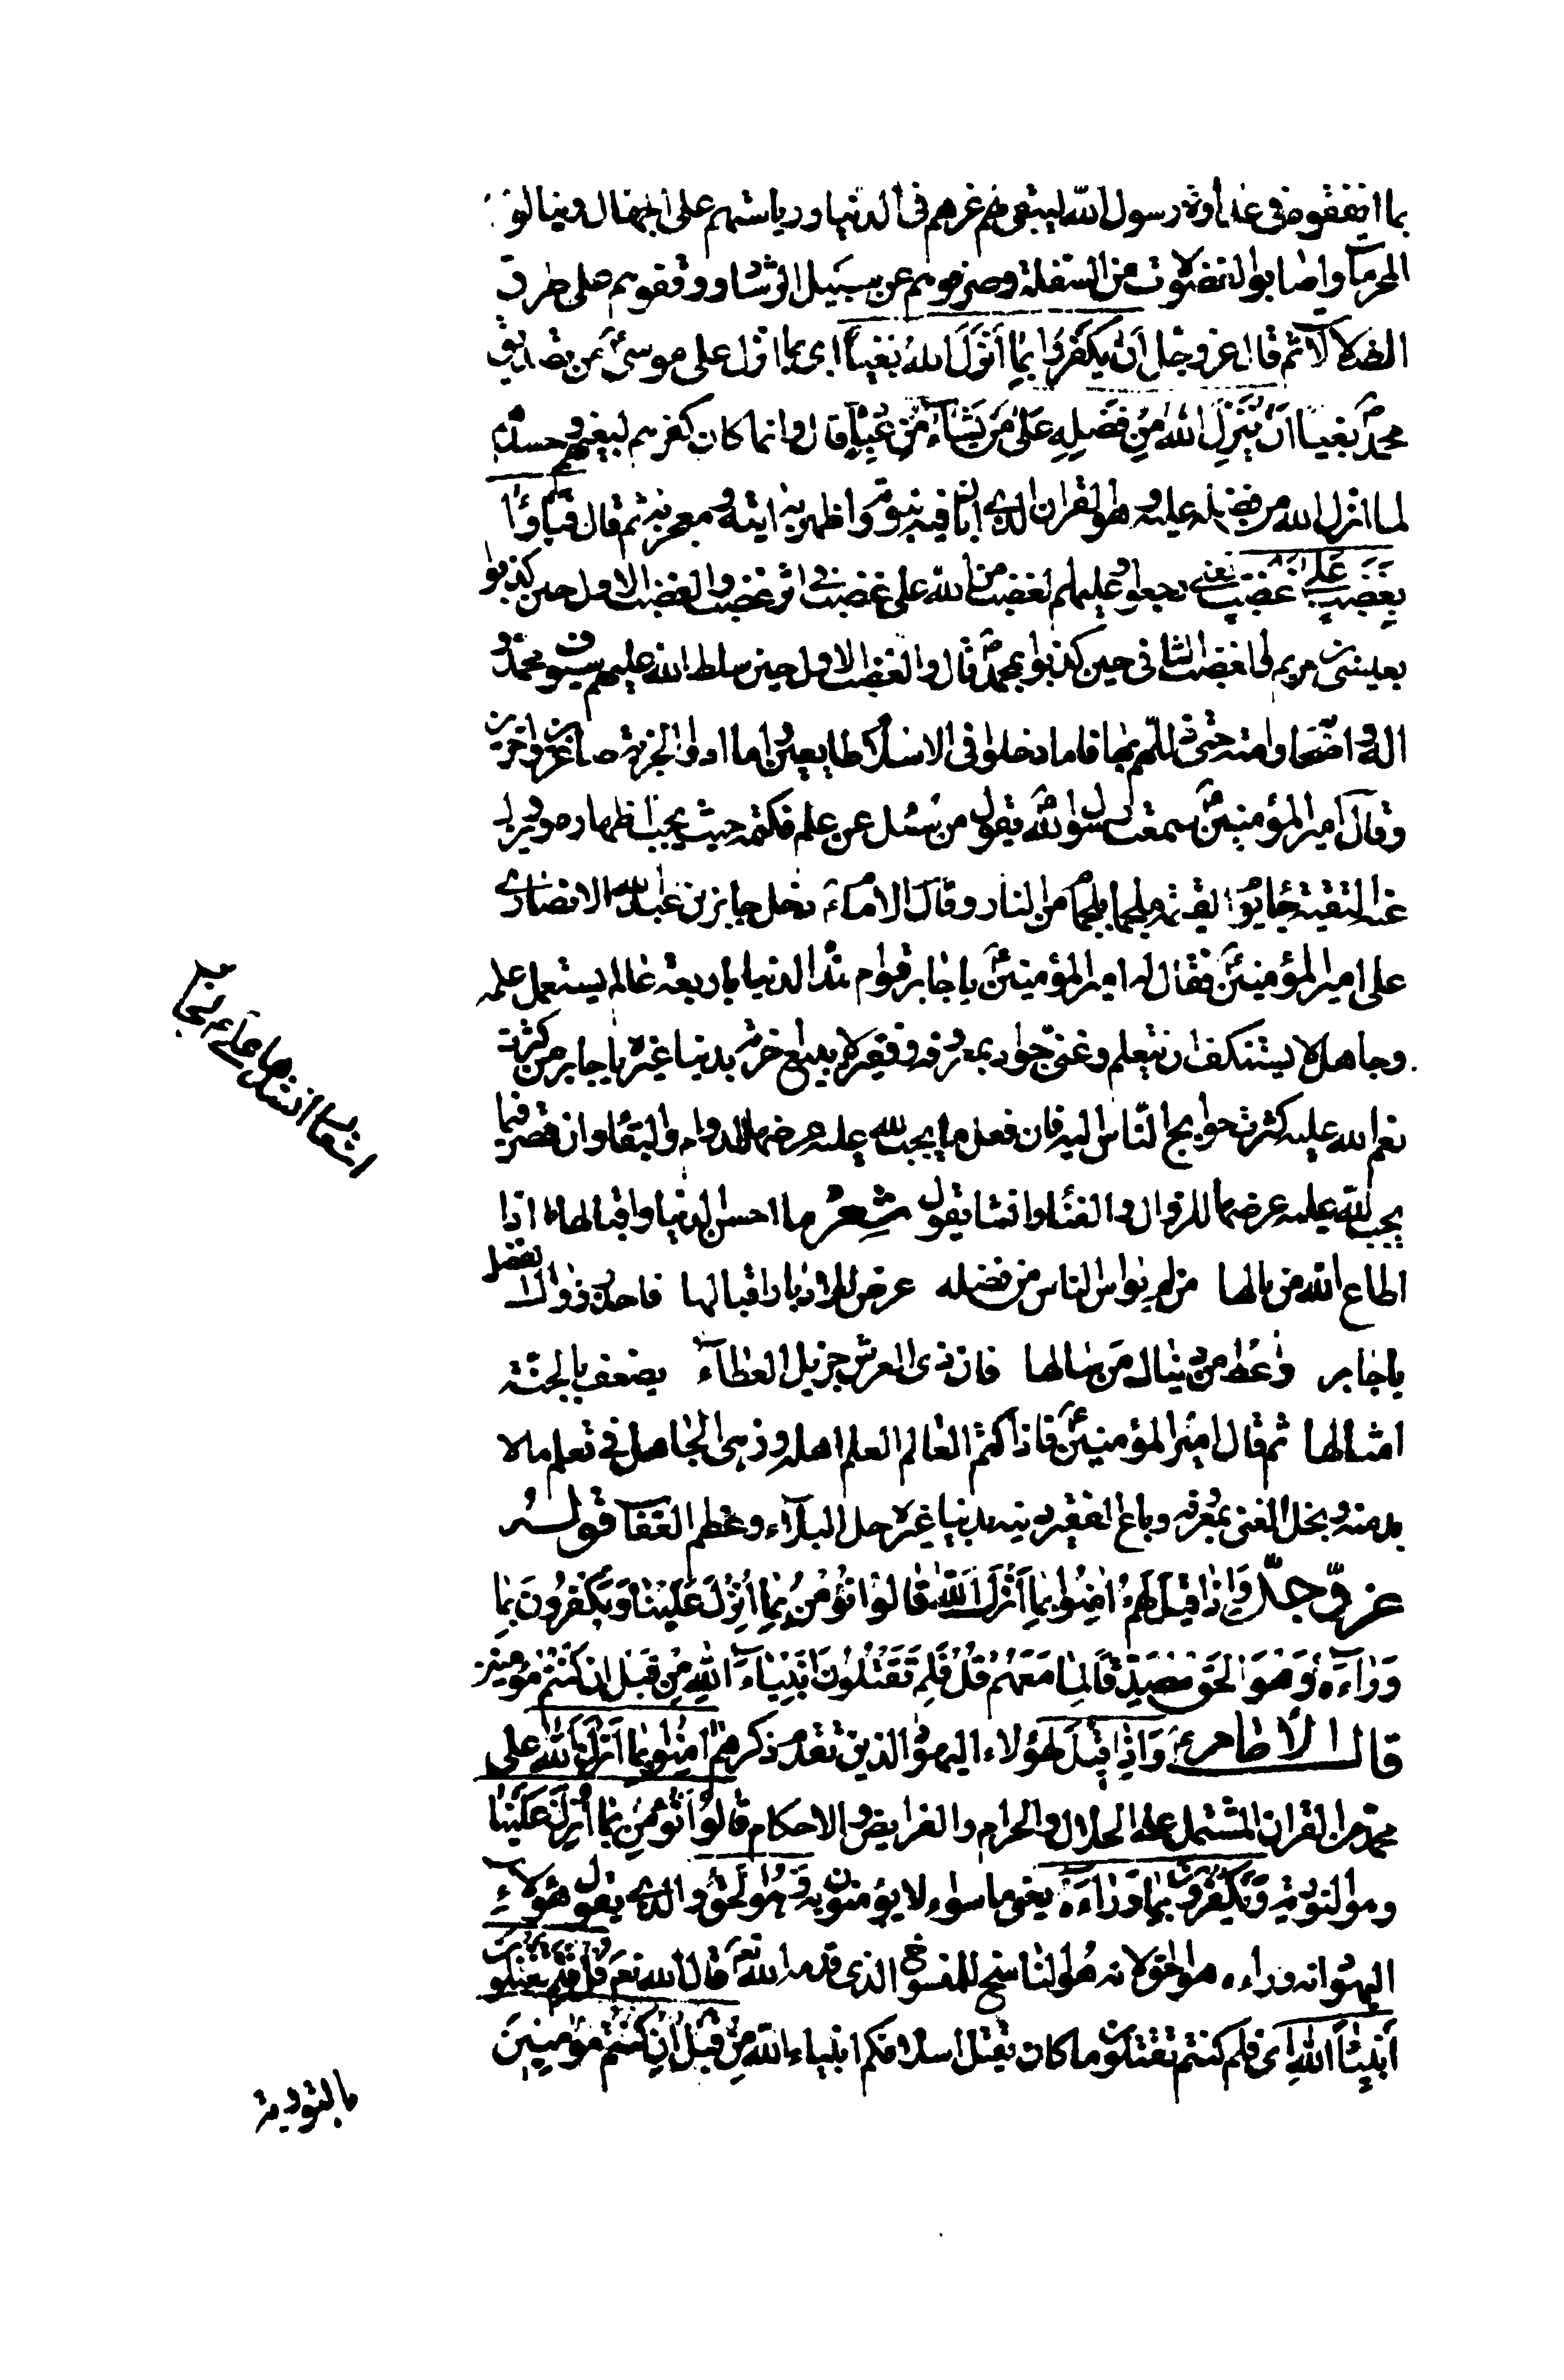 بما انفقوه فى عداوة رسول الله ليبقى لهم عزهم فى الدنيا ورياستهم على الجهال وينالوا
المحرمات واصابوا الفضولات من السفلة وصرفوهم عن سبيل الرشاد ووقفوهم على طرق
الضلالات ثم قال عز وجل اَنْ يَكْفُرُوا بِما اَنْزَلَ اللهُ بَغْياً اى بما انزل على موسى من تصديق
محمد بغيا اَنْ يُنَزِّلَ اللهُ مِنْ فَضْلِهِ عَلى مَنْ يَشاءُ مِنْ عِبادِهِ قال وانما كان كفرهم لبغيهم وحسدهم
لما انزل الله من فضله عليه وهو القران الذى ابان فيه نبوته واظهر به ايته ومعجزته ثم قال فَباؤُا
بِغَضَبٍ عَلى غَضَبٍ يعنى رجعوا وعليهم الغضب من الله على غضب فى اثر غضب والغضب الاول حين كذبوا
بعيسى بن مريم والغضب الثانى حين كذبوا بمحمد قال والغضب الاول حين سلط الله عليهم سيوف محمد و
اله واصحابه وامته حتى ذللهم بها فاما دخلوا فى الاسلام طايعين واما ادوا الجزية صاغرين داخرين
وقال امير المؤمنين سمعت رسول الله يقول من سئل عن علم فكتمه حيث يجب اظهاره وتزول
عنه التقية جاء يوم القيمة ملجما بلجام من النار وقال الامام دخل جابر بن عبدالله الانصارى
على امير المؤمنين فقال له امير المؤمنين يا جابر قوام هذا الدنيا باربعة عالم يستعمل علمه
وجاهل لا يستنكف ان يتعلم وغنى جواد بمعروفه وفقير لا يبيع اخرته بدنيا غيره يا جابر من كثرت
نعم الله عليه كثرت حوايج الناس اليه فان فعل ما يجب لله عليه عرضها للدوام والبقاء وان قصر فيما
يجب لله عليه عرضها للزوال والفناء وانشا يقول شعر ما احسن الدنيا واقبالها اذا
اطاع الله من نالها من لم يواس الناس من فضله عرض للادبار اقبالها فاحذر زوال الفضل
يا جابر واعط من دنياك من سالها فان ذى العرش جزيل العطاء يضعف بالجنة
امثالها ثم قال امير المؤمنين فاذا كتم العالم العلم اهله وزهى الجاهل فى تعلم ما لا
بد منه وبخل الغنى بمعروفه وباع الفقير دينه بدنيا غيره حل البلاء وعظم العقاب قوله
عز وجل وَاِذا قيلَ لَهُمْ امِنُوا بِما اَنْزَلَ اللهُ قالُوا نُؤْمِنُ بِما اُنْزِلَ عَلَيْنا وَيَكْفُرُونَ بِما
وَراءَهُ وَهُوَ الْحَقُّ مُصَدِّقًا لِما مَعَهُمْ قُلْ فَلِمَ تَقْتُلُونَ اَنْبِياءَ اللهِ مِنْ قَبْلُ اِنْ كُنْتُمْ مُؤْمِنينَ
قال الامام وَاِذا قيلَ لهؤلاء اليهود الذين تقدم ذكرهم امِنُوا بِما اَنْزَلَ اللهُ على
محمد من القران المشتمل على الحلال والحرام والفرايض والاحكام قالُوا نُؤْمِنُ بِما اُنْزِلَ عَلَيْنا
وهو التورية وَيَكْفُرُونَ بِما وَراءَهُ يعنى ما سواه لا يؤمنون به وَهُوَ الحَقُّ والذى يقول هؤلاء
اليهود انه وراءه هو الحق لانه هو الناسخ للمنسوخ الذى قدمه الله تعالى قال الله تعم قُلْ فَلِمَ تَقْتُلُونَ
اَنْبِياءَ اللهِ اى فلم كنتم تقتلون ما كان يقتل اسلافكم انبياء الله مِنْ قَبْلُ اِنْ كُنْتُمْ مُؤْمِنينَ
بالتورية